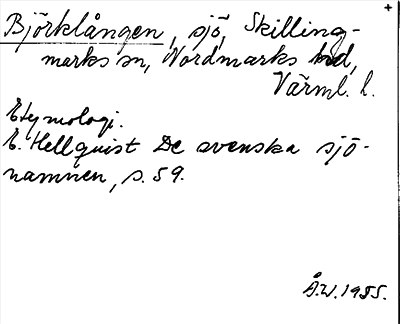 Björklången, sjö, Skilling-
marks sn, Nordmarks hd,
Värml. l.
Etymologi.
E. Hellquist De svenska sjö-
namnen, s. 59.
Å.W. 1955.